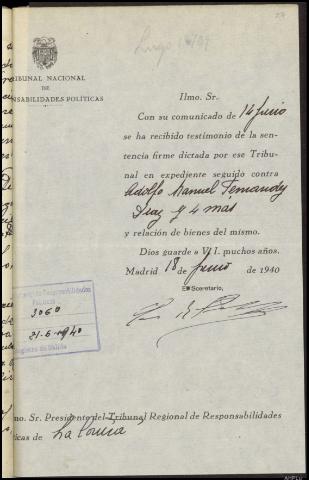 Lugo
RIBUNAL NACIONAL
DE
NSABILIDADES POLÍTICAS
Ilmo. Sr.
Con su comunicado de 14 junio
se ha recibido testimonio de la sen-
tencia firme dictada por ese Tribu-
nal en expediente seguido contra
Adolfo Manuel Fernandez
Diaz y 4 más
y relación de bienes del mismo.
Dios guarde a V. I. muchos años.
Madrid 18 de junio de 1940
El Secretario,
Responsabilidades
Políticas
3060
21-6-1940
Registro de Salida
lmo. Sr. Presidente del Tribunal Regional de Responsabilidades
ticas de La Coruña